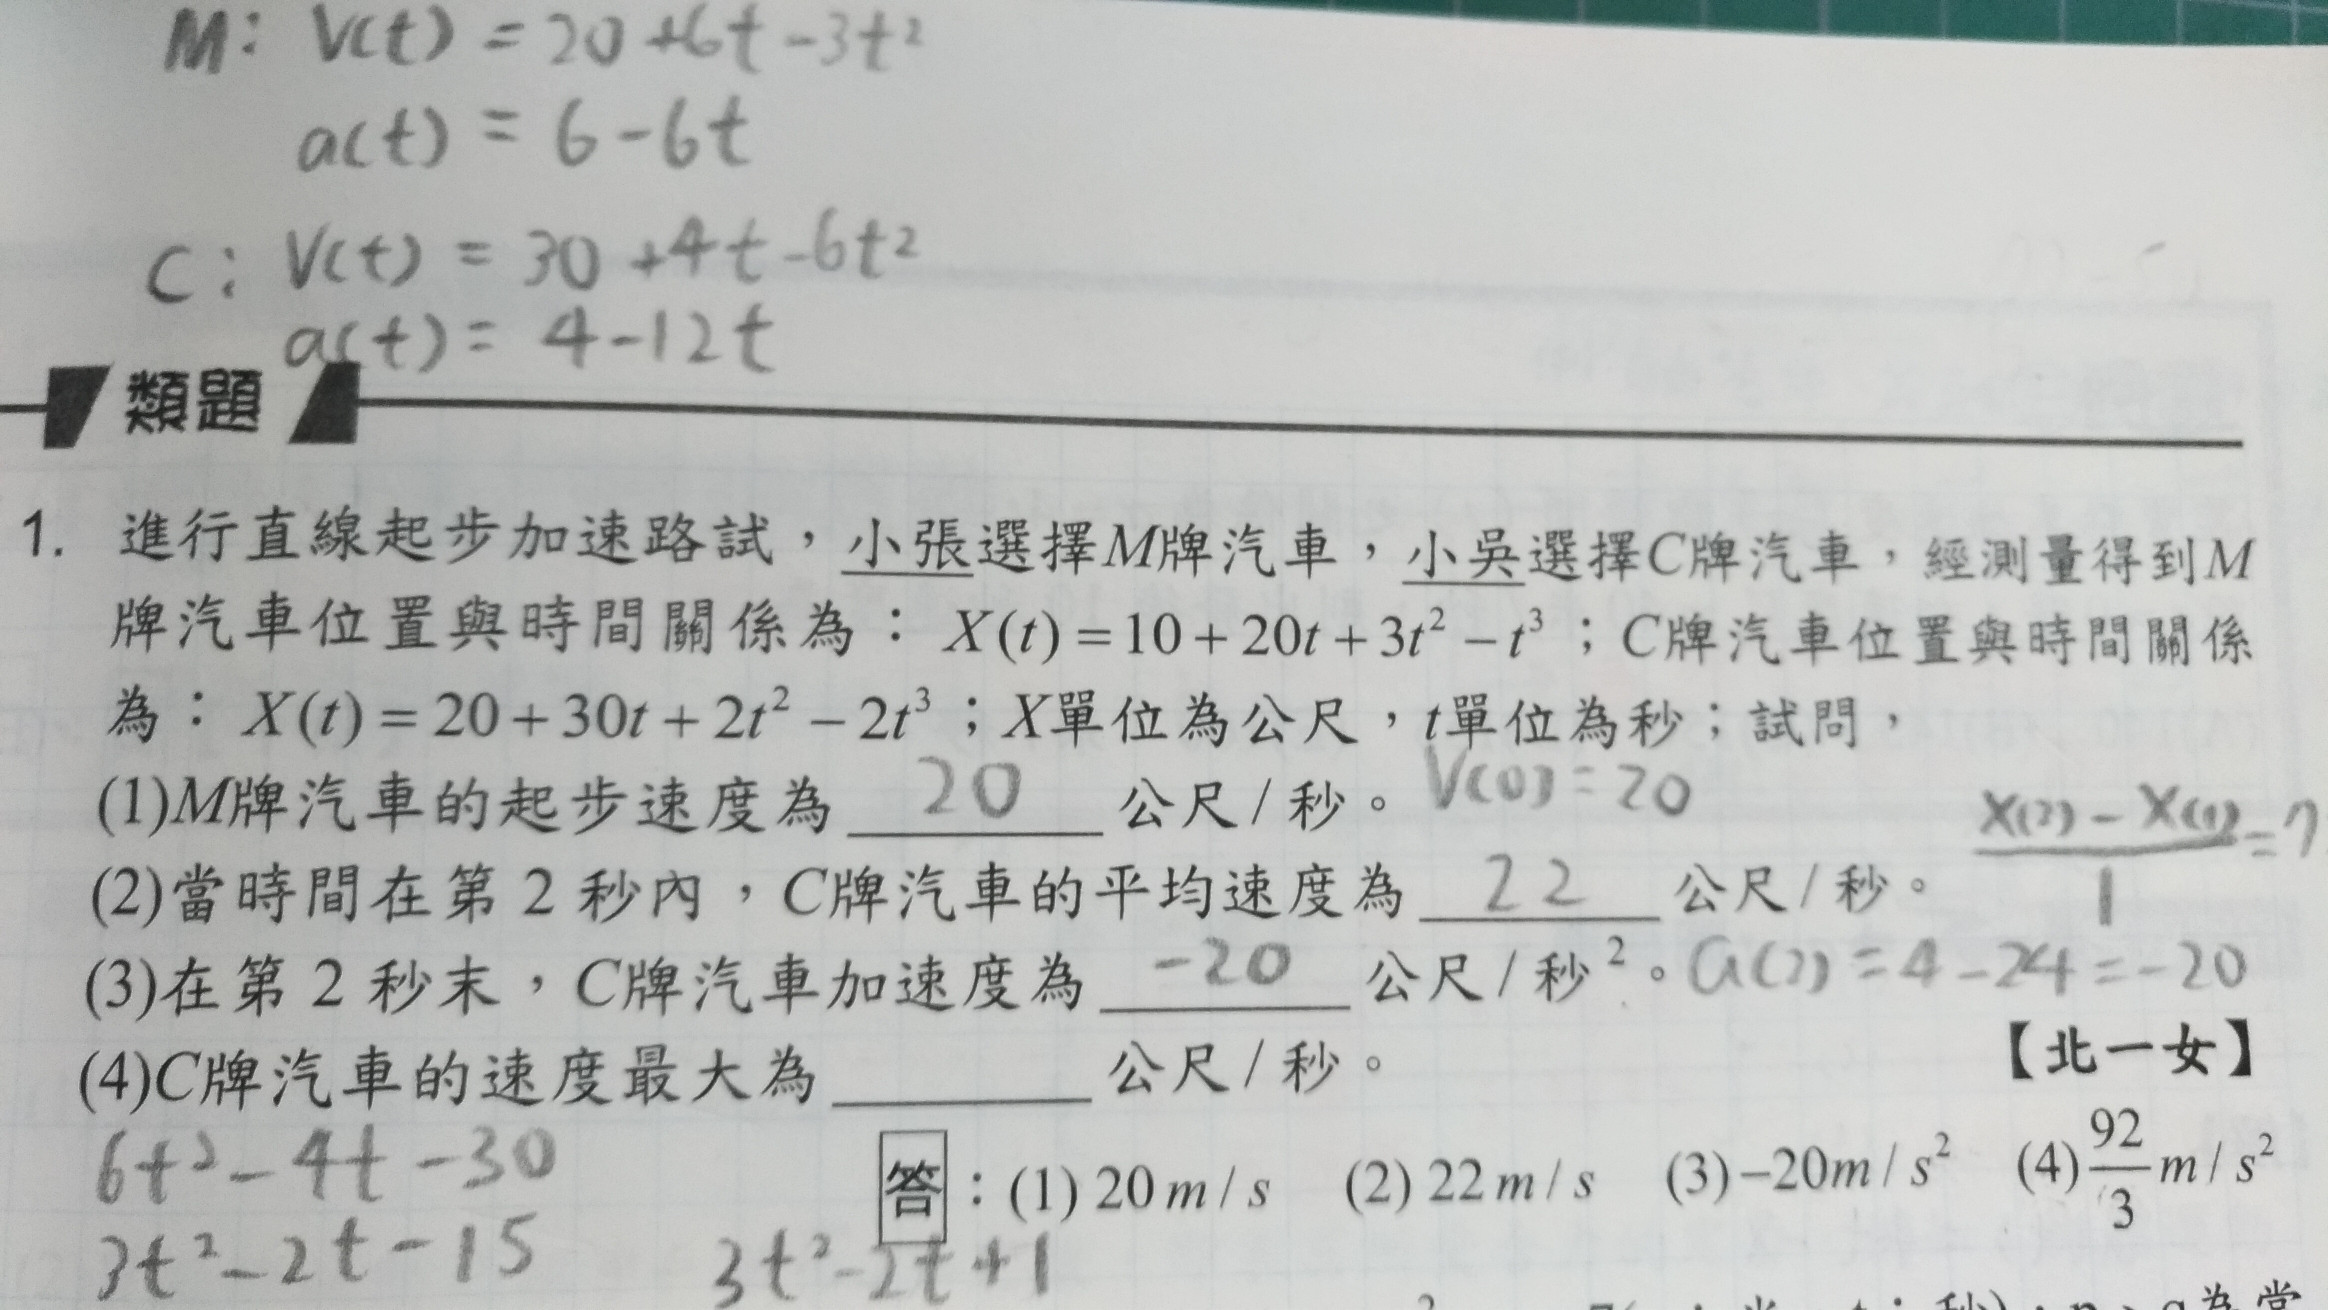 M: V(t) = 20+6t-3t²
a(t) = 6-6t
C: V(t) = 30+4t-6t²
a(t) = 4-12t
類題
1. 進行直線起步加速路試，小張選擇M牌汽車，小吳選擇C牌汽車，經測量得到M
牌汽車位置與時間關係為：X(t)=10+20t+3t²-t³；C牌汽車位置與時間關係
為：X(t)=20+30t+2t²-2t³；X單位為公尺，t單位為秒；試問，
(1)M牌汽車的起步速度為 20 公尺/秒。 V(0)=20
(2)當時間在第 2 秒內，C牌汽車的平均速度為 22 公尺/秒。 X(2)-X(1)/1 =
(3)在第 2 秒末，C牌汽車加速度為 -20 公尺/秒²。a(2)=4-24=-20
(4)C牌汽車的速度最大為______公尺/秒。 【北一女】
6t²-4t-30
答：(1) 20 m/s (2) 22 m/s (3) -20m/s² (4) 92/3 m/s²
3t²-2t-15 3t²-2t+1